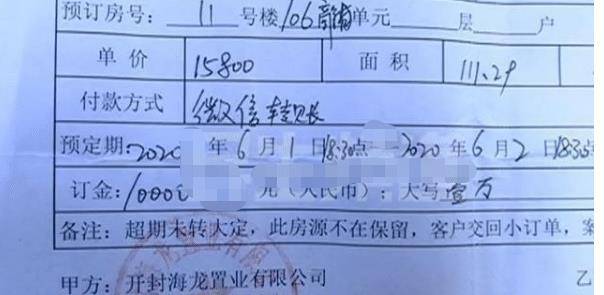 预订房号： 11 号楼 106 商铺单元 层 户
单 价 15800 面 积 111.29
付款方式 微信转账
预定期：2020 年 6 月 1 日 18:30点 —2020 年 6 月 2 日 18:30点
订金：10000 元（人民币）；大写 壹万
备注：超期未转大定，此房源不在保留，客户交回小订单，
甲方：开封海龙置业有限公司 乙